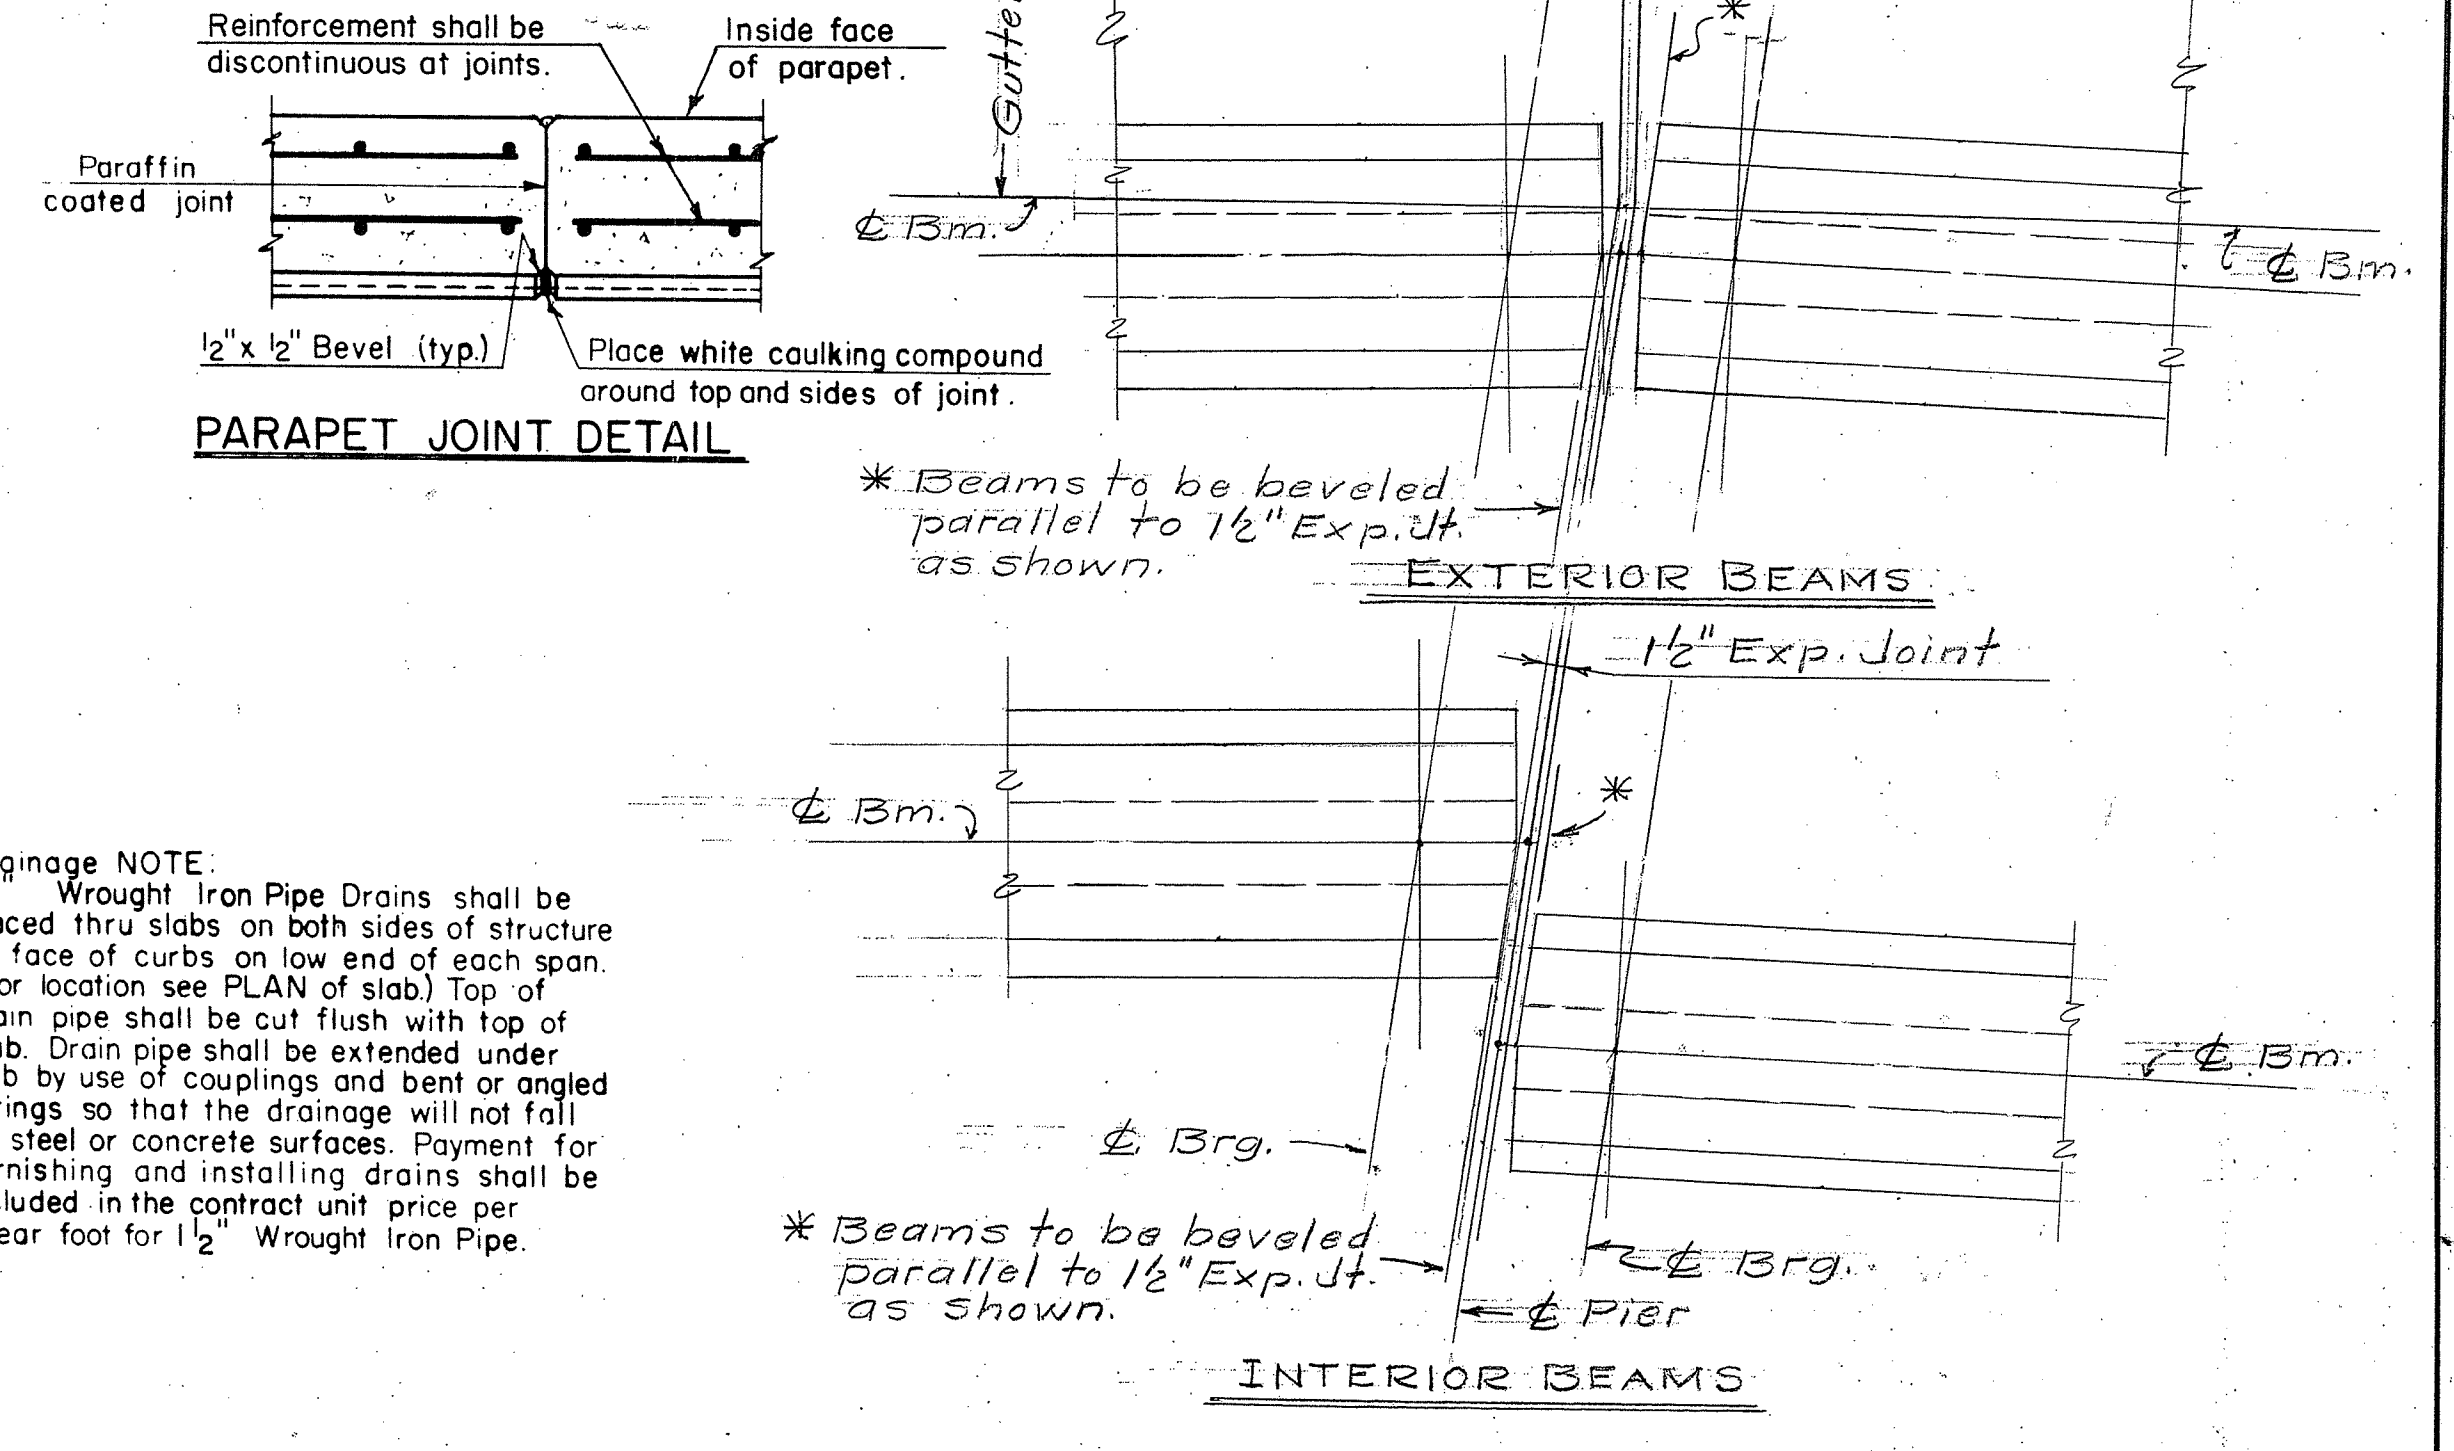 Reinforcement shall be
discontinuous at joints.
Inside face
of parapet.
Paraffin
coated joint
1/2" x 1/2" Bevel (typ.)
Place white caulking compound
around top and sides of joint.
PARAPET JOINT DETAIL
Gutte
*
℄ Bm.
℄ Bm.
* Beams to be beveled
parallel to 1 1/2" Exp. Jt.
as shown.
EXTERIOR BEAMS
1 1/2" Exp. Joint
℄ Bm.
*
℄ Bm.
℄ Brg.
* Beams to be beveled
parallel to 1 1/2" Exp. Jt.
as shown.
℄ Brg.
℄ Pier
INTERIOR BEAMS
ginage NOTE:
" Wrought Iron Pipe Drains shall be
ced thru slabs on both sides of structure
face of curbs on low end of each span.
or location see PLAN of slab.) Top of
ain pipe shall be cut flush with top of
ab. Drain pipe shall be extended under
b by use of couplings and bent or angled
ings so that the drainage will not fall
steel or concrete surfaces. Payment for
rnishing and installing drains shall be
luded in the contract unit price per
ear foot for 1 1/2" Wrought Iron Pipe.